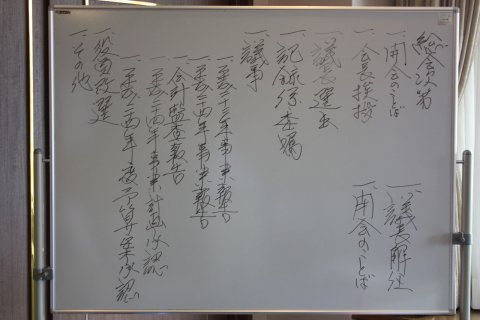 総会次第
一、開会のことば
一、会長挨拶
一、議長選出
一、記録係委嘱
一、議事
一、平成二十三年事業報告
一、会計監査報告
一、平成二十四年事業計画承認
一、平成二十四年度予算案承認
一、役員改選
一、その他
一、議長解任
一、閉会のことば